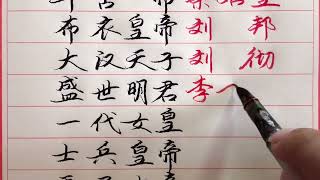 布衣皇帝 刘 邦
大汉天子 刘 彻
盛世明君 李
一代女皇
士兵皇帝